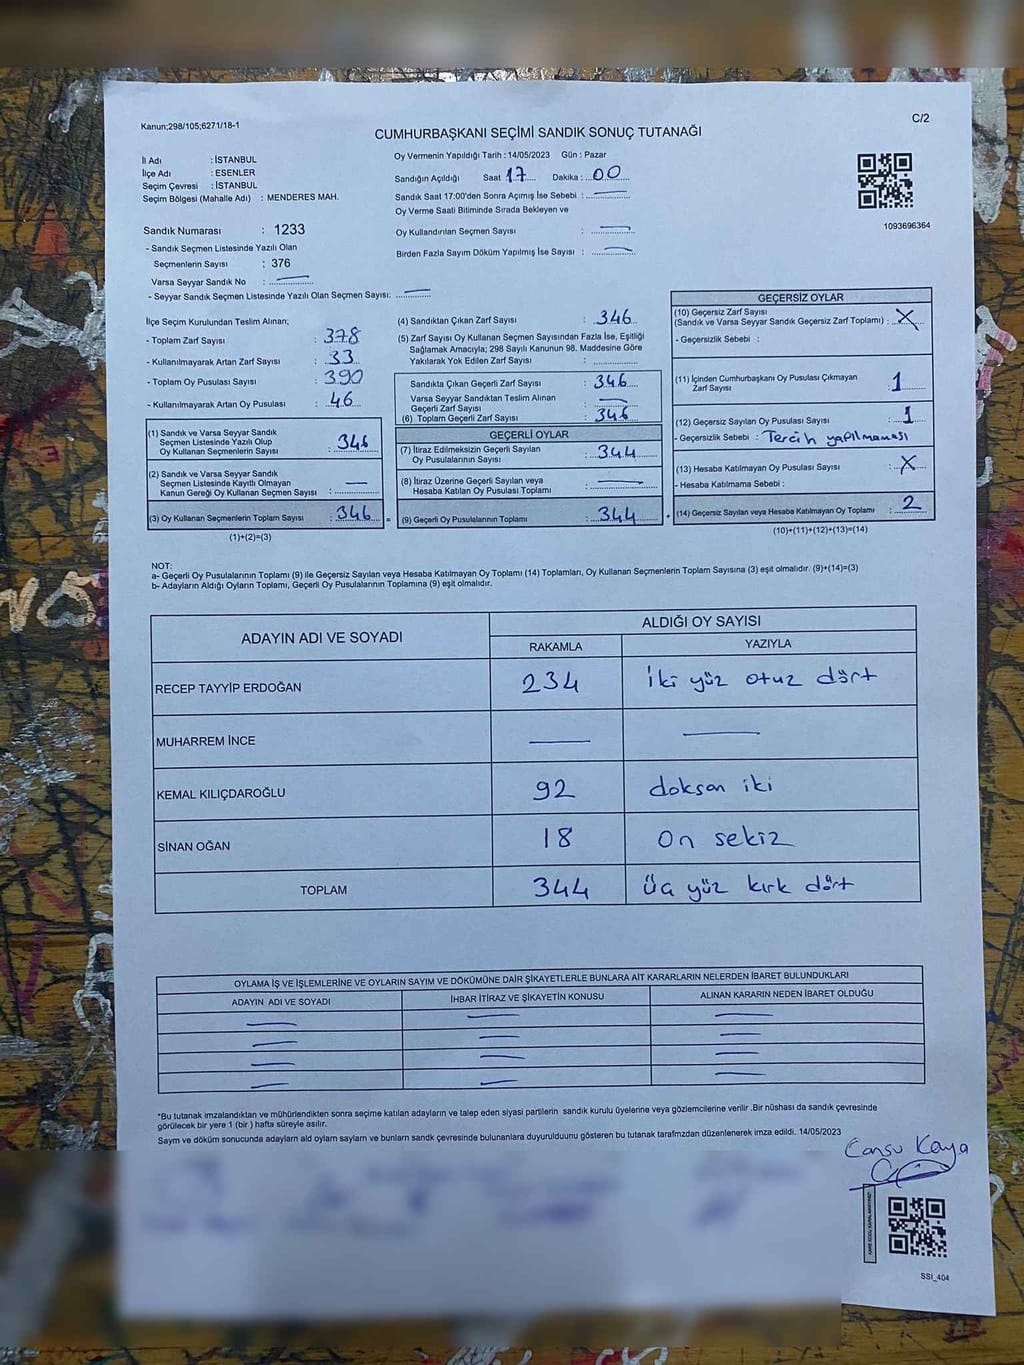 Kanun;298/105;6271/18-1
C/2
CUMHURBAŞKANI SEÇİMİ SANDIK SONUÇ TUTANAĞI
İl Adı : İSTANBUL
İlçe Adı : ESENLER
Seçim Çevresi : İSTANBUL
Seçim Bölgesi (Mahalle Adı) : MENDERES MAH.
Oy Vermenin Yapıldığı Tarih : 14/05/2023 Gün : Pazar
Sandığın Açıldığı Saat 17 Dakika : 00
Sandık Saat 17:00'den Sonra Açımış İse Sebebi :
Oy Verme Saati Bitiminde Sırada Bekleyen ve
Oy Kullandırılan Seçmen Sayısı :
Birden Fazla Sayım Döküm Yapılmış İse Sayısı :
1093696364
Sandık Numarası : 1233
- Sandık Seçmen Listesinde Yazılı Olan
Seçmenlerin Sayısı : 376
Varsa Seyyar Sandık No :
- Seyyar Sandık Seçmen Listesinde Yazılı Olan Seçmen Sayısı:
İlçe Seçim Kurulundan Teslim Alınan;
- Toplam Zarf Sayısı : 378
- Kullanılmayarak Artan Zarf Sayısı : 33
- Toplam Oy Pusulası Sayısı : 390
- Kullanılmayarak Artan Oy Pusulası : 46
(1) Sandık ve Varsa Seyyar Sandık
Seçmen Listesinde Yazılı Olup
Oy Kullanan Seçmenlerin Sayısı : 346
(2) Sandık ve Varsa Seyyar Sandık
Seçmen Listesinde Kayıtlı Olmayan
Kanun Gereği Oy Kullanan Seçmen Sayısı :
(3) Oy Kullanan Seçmenlerin Toplam Sayısı : 346 =
(1)+(2)=(3)
(4) Sandıktan Çıkan Zarf Sayısı : 346
(5) Zarf Sayısı Oy Kullanan Seçmen Sayısından Fazla İse, Eşitliği
Sağlamak Amacıyla; 298 Sayılı Kanunun 98. Maddesine Göre
Yakılarak Yok Edilen Zarf Sayısı :
Sandıkta Çıkan Geçerli Zarf Sayısı : 346
Varsa Seyyar Sandıktan Teslim Alınan
Geçerli Zarf Sayısı :
(6) Toplam Geçerli Zarf Sayısı : 346
GEÇERLİ OYLAR
(7) İtiraz Edilmeksizin Geçerli Sayılan
Oy Pusulalarının Sayısı : 344
(8) İtiraz Üzerine Geçerli Sayılan veya
Hesaba Katılan Oy Pusulası Toplamı :
(9) Geçerli Oy Pusulalarının Toplamı : 344 +
GEÇERSİZ OYLAR
(10) Geçersiz Zarf Sayısı
(Sandık ve Varsa Seyyar Sandık Geçersiz Zarf Toplamı) : X
- Geçersizlik Sebebi :
(11) İçinden Cumhurbaşkanı Oy Pusulası Çıkmayan
Zarf Sayısı : 1
(12) Geçersiz Sayılan Oy Pusulası Sayısı : 1
- Geçersizlik Sebebi : Tercih yapılmaması
(13) Hesaba Katılmayan Oy Pusulası Sayısı : X
- Hesaba Katılmama Sebebi :
(14) Geçersiz Sayılan veya Hesaba Katılmayan Oy Toplamı : 2
(10)+(11)+(12)+(13)=(14)
NOT:
a- Geçerli Oy Pusulalarının Toplamı (9) ile Geçersiz Sayılan veya Hesaba Katılmayan Oy Toplamı (14) Toplamları, Oy Kullanan Seçmenlerin Toplam Sayısına (3) eşit olmalıdır. (9)+(14)=(3)
b- Adayların Aldığı Oyların Toplamı, Geçerli Oy Pusulalarının Toplamına (9) eşit olmalıdır.
ADAYIN ADI VE SOYADI
ALDIĞI OY SAYISI
RAKAMLA YAZIYLA
RECEP TAYYİP ERDOĞAN 234 iki yüz otuz dört
MUHARREM İNCE
KEMAL KILIÇDAROĞLU 92 doksan iki
SİNAN OĞAN 18 on sekiz
TOPLAM 344 Üç yüz kırk dört
OYLAMA İŞ VE İŞLEMLERİNE VE OYLARIN SAYIM VE DÖKÜMÜNE DAİR ŞİKAYETLERLE BUNLARA AİT KARARLARIN NELERDEN İBARET BULUNDUKLARI
ADAYIN ADI VE SOYADI İHBAR İTİRAZ VE ŞİKAYETİN KONUSU ALINAN KARARIN NEDEN İBARET OLDUĞU
*Bu tutanak imzalandıktan ve mühürlendikten sonra seçime katılan adayların ve talep eden siyasi partilerin sandık kurulu üyelerine veya gözlemcilerine verilir .Bir nüshası da sandık çevresinde
görülecek bir yere 1 (bir ) hafta süreyle asılır.
Sayım ve döküm sonucunda adayların ald oylam sayların ve bunların sandk çevresinde bulunanlara duyurulduunu gösteren bu tutanak tarafmzdan düzenlenerek imza edildi. 14/05/2023
Cansu Kaya
SSI_404